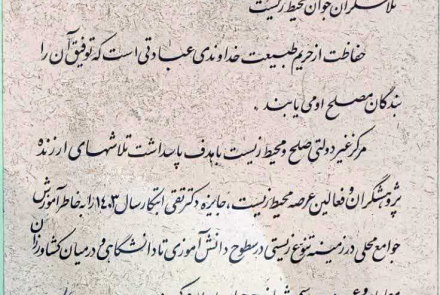 تلاشگران جوان محیط زیست
حفاظت از حریم طبیعت خداوندی عبادتی است که توفیق آن را
بندگان مصلح او می یابند .
مرکز غیر دولتی صلح و محیط زیست با هدف پاسداشت تلاشهای ارزنده
پژوهشگران و فعالین عرصه محیط زیست، جایزه دکتر تقی ابتکار سال ۱۴۰۳ را به خاطر آموزش
جوامع محلی در زمینه تنوع زیستی در سطوح دانش آموزی تا دانشگاهی و در میان کشاورزان